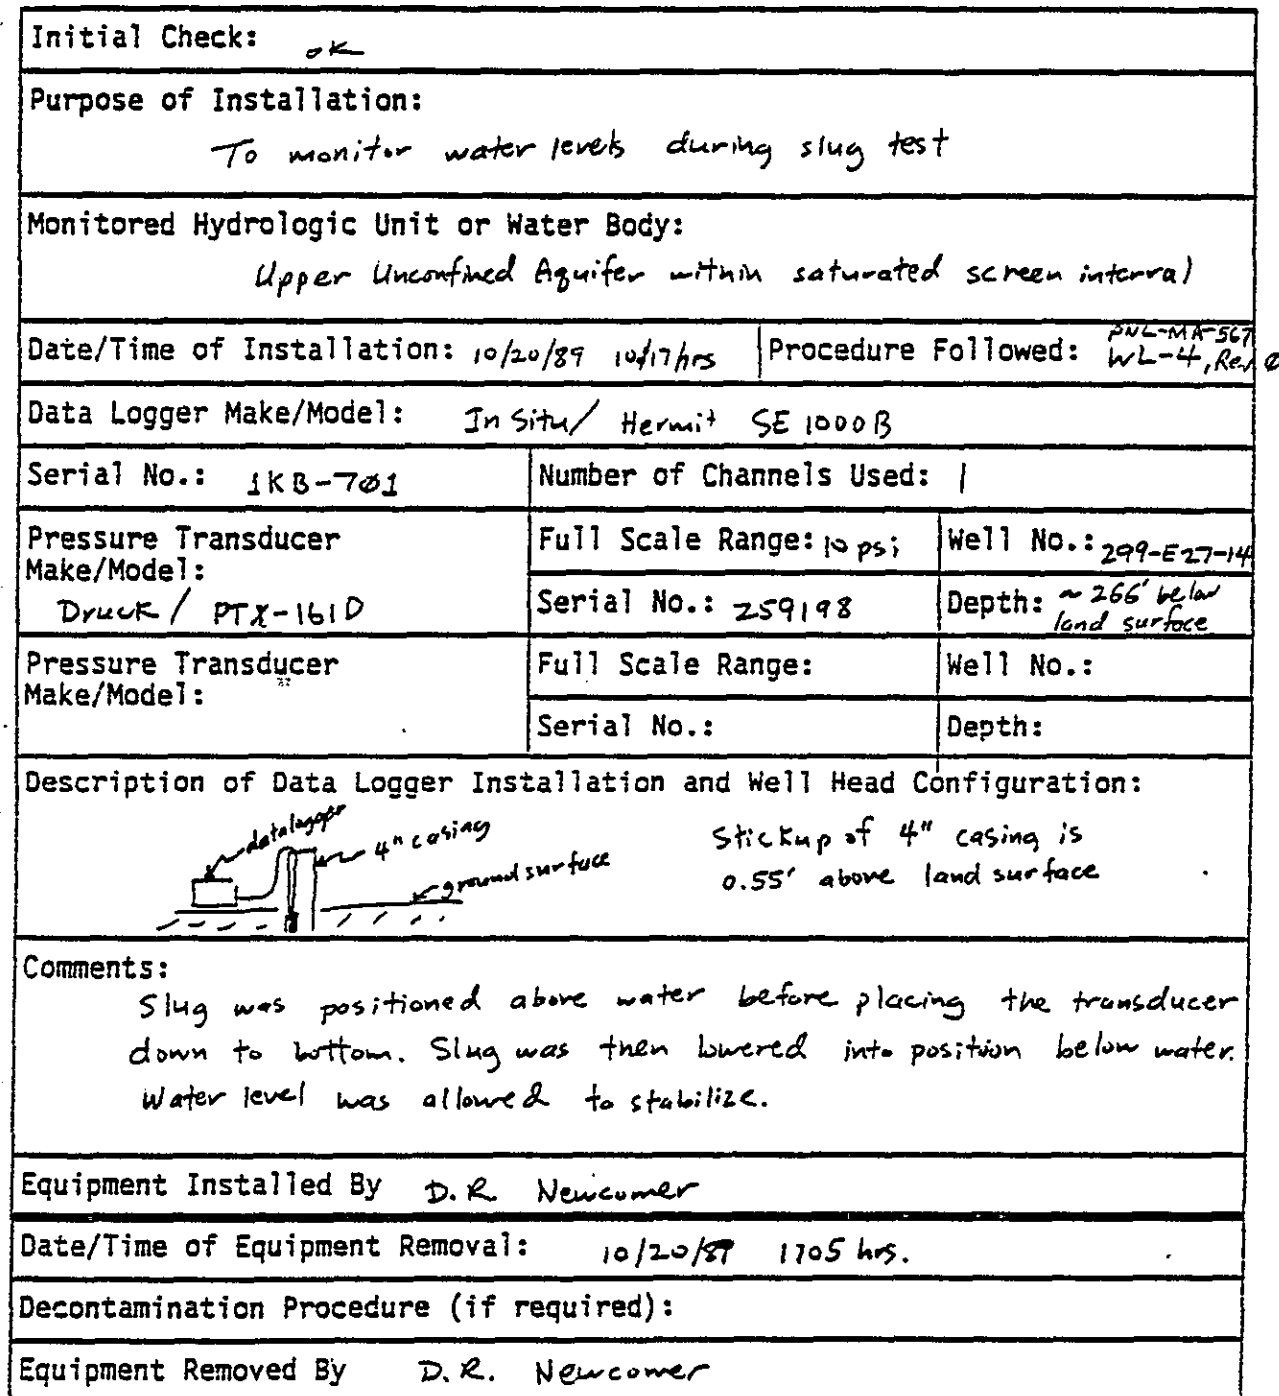 Initial Check: OK
Purpose of Installation:
To monitor water levels during slug test
Monitored Hydrologic Unit or Water Body:
Upper Unconfined Aquifer within saturated screen interval
Date/Time of Installation: 10/20/89 1017 hrs Procedure Followed: PNL-MA-567
WL-4, Rev Ø
Data Logger Make/Model: In Situ/ Hermit SE 1000B
Serial No.: 1KB-7Ø1 Number of Channels Used: 1
Pressure Transducer
Make/Model:
Druck / PTX-161D
Full Scale Range: 10 psi Well No.: 299-E27-14
Serial No.: 259198 Depth: ~ 266' below
land surface
Pressure Transducer
Make/Model:
Full Scale Range: Well No.:
Serial No.: Depth:
Description of Data Logger Installation and Well Head Configuration:
datalogger
4" casing
ground surface
Stickup of 4" casing is
0.55' above land surface
Comments:
Slug was positioned above water before placing the transducer
down to bottom. Slug was then lowered into position below water.
Water level was allowed to stabilize.
Equipment Installed By D.R. Newcomer
Date/Time of Equipment Removal: 10/20/89 1705 hrs.
Decontamination Procedure (if required):
Equipment Removed By D.R. Newcomer